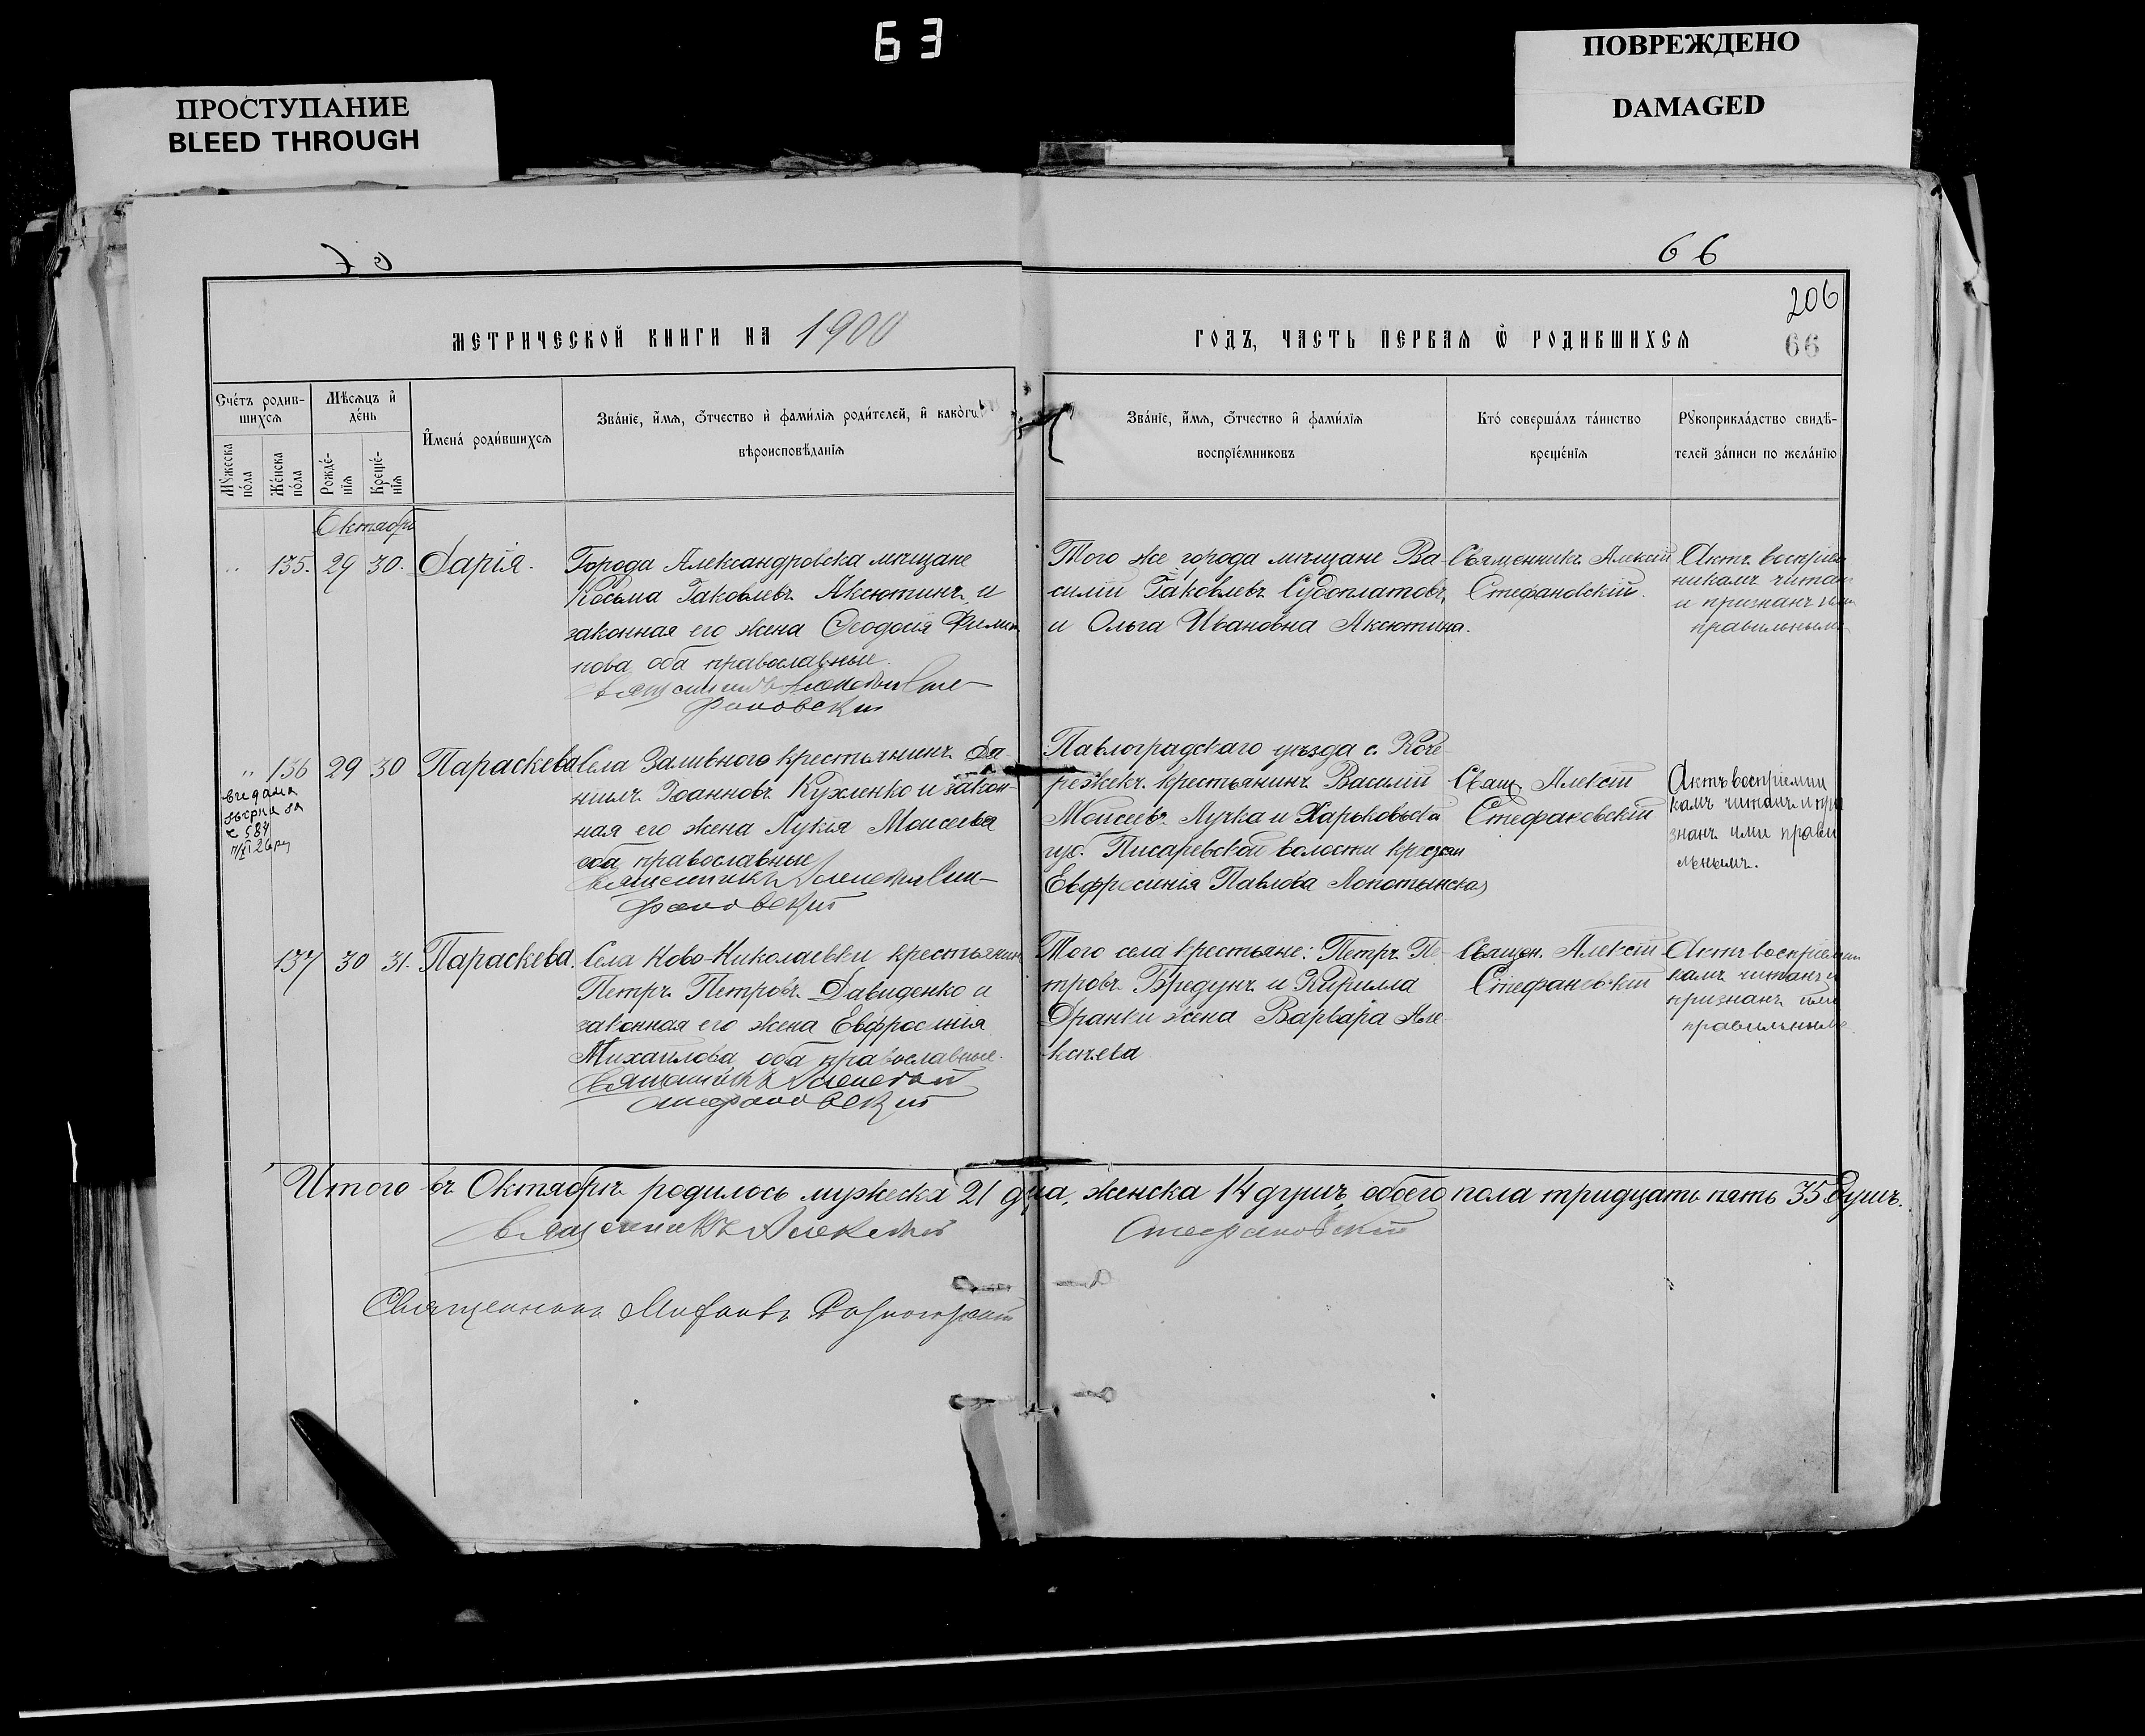 63
ПРОСТУПАНИЕ
BLEED THROUGH
ПОВРЕЖДЕНО
DAMAGED
66
206
66
МЕТРИЧЕСКОЙ КНИГИ НА 1900
ГОДЪ, ЧАСТЬ ПЕРВАЯ Ѿ РОДИВШИХСЯ
Счетъ родив-
шихся
Мѣсяцъ и
день
Имена родившихся
Званіе, имя, отчество и фамилія родителей, и какого
вѣроисповѣданія
Мужеска пола
Женска пола
Рожде-
нія
Креще-
нія
Званіе, имя, отчество и фамилія
воспріемниковъ
Кто совершалъ таинство
крещенія
Рукоприкладство свидѣ-
телей записи по желанію
Октябрь
135. 29 30. Дарія.
Города Александровска мѣщане
Косьма Іаковлевъ Аксютинъ и
законная его жена Ѳеодосія Филип
пова оба православные.
Священникъ Алексій Сте-
фановскій
Того же города мѣщане Ва-
силій Іаковлевъ Судоплатовъ
и Ольга Ивановна Аксютина.
Священникъ Алексій
Стефановскій.
Актъ воспріем
никамъ читан
и признанъ ими
правильнымъ
136 29 30 Параскева
Села Заливного крестьянинъ Да-
ніилъ Іоанновъ Кухленко и закон-
ная его жена Лукія Моисеева
оба православные
Священникъ Алексій Сте-
фановскій
Павлоградскаго уѣзда с. Коче-
режекъ крестьянинъ Василій
Моисеевъ Лучка и Харьковской
губ. Писаревской волости
Евфросинія Павлова
Свящ. Алексій
Стефановскій
Актъ воспріемни
камъ читанъ и при
знанъ ими прави
льнымъ.
выдана
за
137 30 31. Параскева.
Села Ново-Николаевки крестьянин
Петръ Петровъ Давиденко и
законная его жена Евфросинія
Михайлова, оба православные.
Священникъ Алексій
Стефановскій
Того села крестьяне: Петръ Пе-
тровъ Бредунъ и Кирилла
Дранки жена Варвара Але-
ксѣева
Священ. Алексій
Стефановскій
Актъ воспріемни
камъ читанъ и
признанъ ими
правильнымъ.
Итого въ Октябрѣ родилось мужеска 21 душа, женска 14 душъ, обоего пола тридцать пять 35 душъ.
Священникъ Алексій Стефановскій
Священникъ